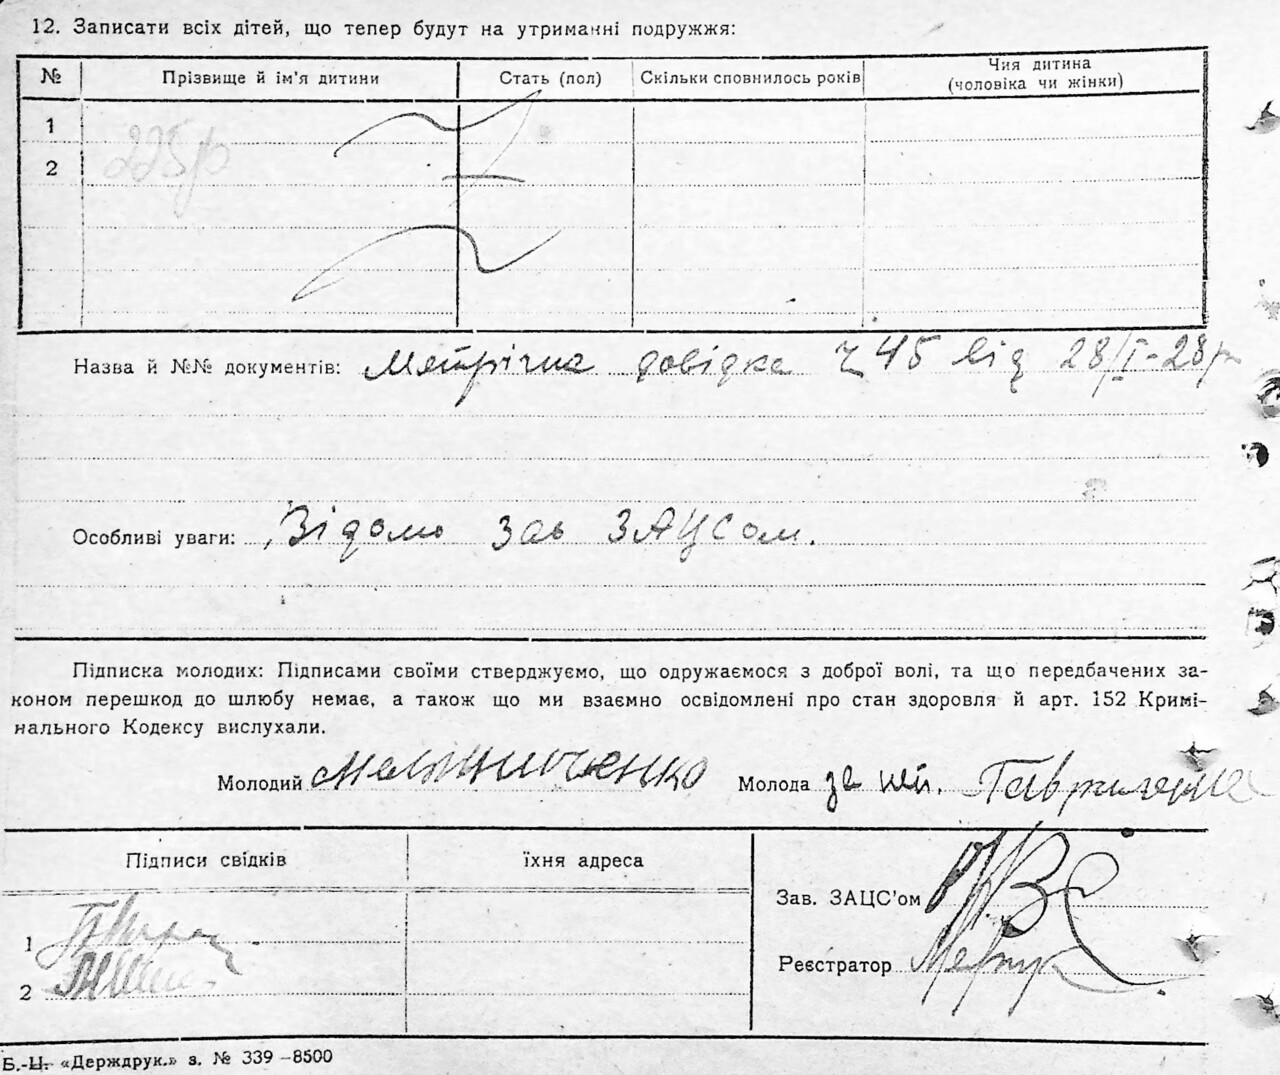 12. Записати всіх дітей, що тепер будут на утриманні подружжя:
№ Прізвище й ім'я дитини Стать (пол) Скільки сповнилось років Чия дитина (чоловіка чи жінки)
1
225/р
2
Назва й №№ документів: Метрічна довідка Ч 45 від 28/I-28р
Особливі уваги: Відомо Зав ЗАЦСом.
Підписка молодих: Підписами своїми стверджуємо, що одружаємося з доброї волі, та що передбачених за-
коном перешкод до шлюбу немає, а також що ми взаємно освідомлені про стан здоровля й арт. 152 Кримі-
нального Кодексу вислухали.
Молодий Мельниченко Молода за неї.
Підписи свідків їхня адреса
Зав. ЗАЦС'ом
1
Реєстратор
2
Б.-Ц. «Держдрук.» з. № 339–8500